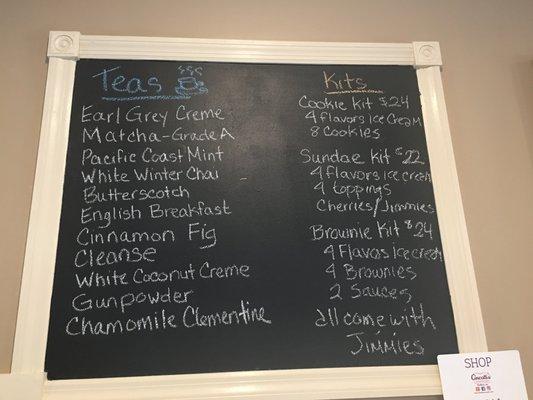 Teas
Earl Grey Creme
Matcha-Grade A
Pacific Coast Mint
White Winter Chai
Butterscotch
English Breakfast
Cinnamon Fig
Cleanse
White Coconut Creme
Gunpowder
Chamomile Clementine
Kits
Cookie Kit $24
4 Flavors Ice Cream
8 Cookies
Sundae Kit $22
4 flavors ice cream
4 toppings
Cherries/Jimmies
Brownie Kit $24
4 Flavors ice cream
4 Brownies
2 Sauces
all come with
Jimmies
SHOP